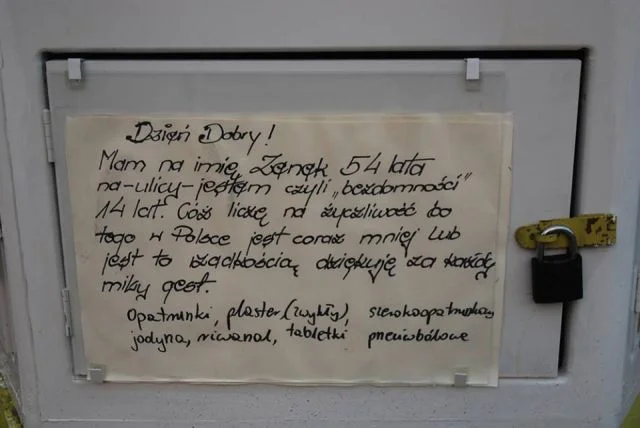 Dzień Dobry!
Mam na imię Zenek 54 lata
na-ulicy-jestem czyli „bezdomności”
14 lat. Cóż liczę na życzliwość bo
tego w Polsce jest coraz mniej lub
jest to rzadkością, dziękuję za każdy
miły gest.
Opatrunki, plaster (zwykły), szerokoopatrunkowy
jodyna, riwanol, tabletki przeciwbólowe